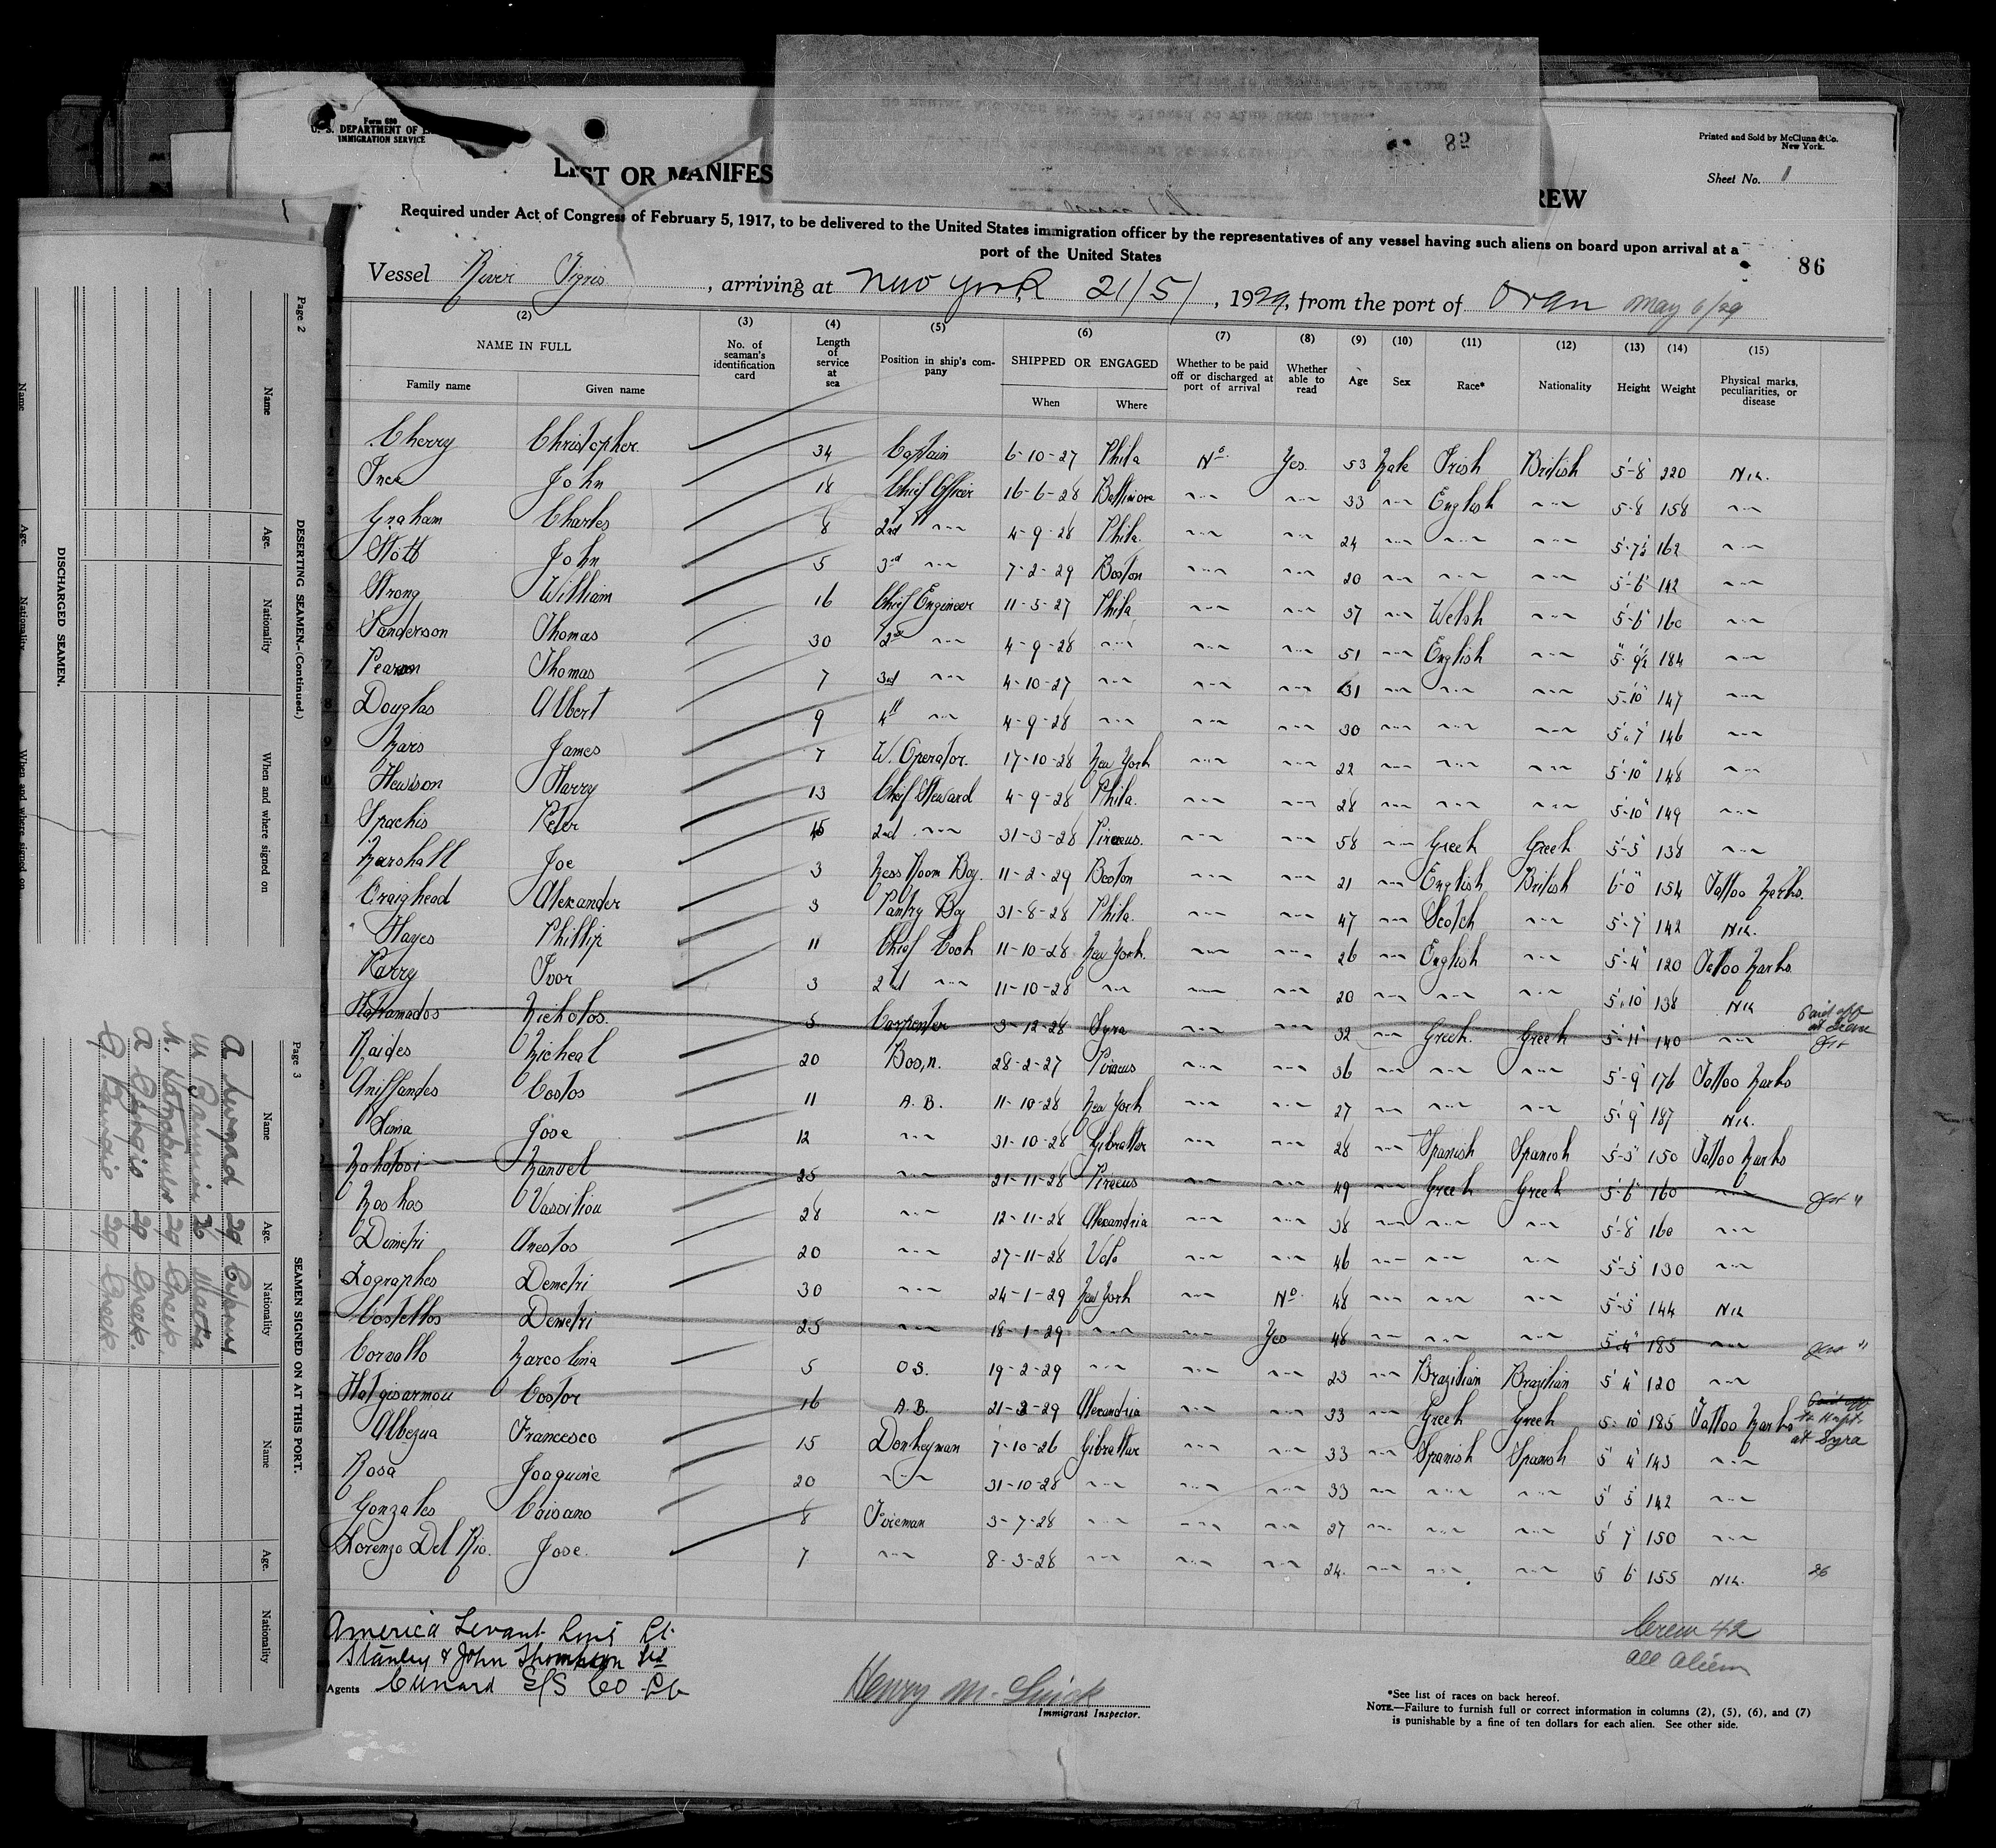 Form 680
U. S. DEPARTMENT OF
IMMIGRATION SERVICE
82
Printed and Sold by McClunn & Co.
New York.
LIST OR MANIFES
REW
Sheet No. 1
Required under Act of Congress of February 5, 1917, to be delivered to the United States immigration officer by the representatives of any vessel having such aliens on board upon arrival at a
port of the United States
86
Vessel River Tigris, arriving at New York 21/5/, 1929, from the port of Oran May 6/29
(2) (3) (4) (5) (6) (7) (8) (9) (10) (11) (12) (13) (14) (15)
NAME IN FULL
Family name
Given name
No. of seaman's identification card
Length of service at sea
Position in ship's company
SHIPPED OR ENGAGED
When
Where
Whether to be paid off or discharged at port of arrival
Whether able to read
Age
Sex
Race*
Nationality
Height
Weight
Physical marks, peculiarities, or disease
1 Cherry Christopher 34 Captain 6-10-27 Phila No Yes 53 Male Irish British 5-8 220 Nil.
2 Ince John 18 Chief Officer 16-6-28 Baltimore " " 33 " English " 5-8 158 "
3 Graham Charles 8 2nd " 4-9-28 Phila. " " 24 " " " 5-7½ 162 "
4 Stott John 5 3rd " 7-2-29 Boston " " 20 " " " 5-6 142 "
5 Strong William 16 Chief Engineer 11-5-27 Phila " " 37 " Welsh " 5-6 160 "
6 Sanderson Thomas 30 2nd " 4-9-28 " " " 51 " English " 5-9½ 184 "
7 Pearson Thomas 7 3rd " 4-10-27 " " " 31 " " " 5-10 147 "
8 Douglas Albert 9 4th " 4-9-28 " " " 30 " " " 5-7 146 "
9 Mars James 7 W. Operator. 17-10-28 New York " " 22 " " " 5-10 148 "
10 Hewison Harry 13 Chief Steward 4-9-28 Phila. " " 28 " " " 5-10 149 "
1 Spachis Peter 45 2nd " 31-3-28 Piraeus. " " 58 " Greek Greek 5-5 138 "
2 Marshall Joe 3 Mess Room Boy. 11-2-29 Boston " " 21 " English British 6-0 154 Tattoo Marks.
Craighead Alexander 3 Pantry Boy 31-8-28 Phila. " " 47 " Scotch " 5-7 142 Nil.
4 Hayes Phillip 11 Chief Cook 11-10-28 New York. " " 26 " English " 5-4 120 Tattoo Marks
Parry Ivor 3 2nd " 11-10-28 " " " 20 " " " 5-10 138 Nil
Nicholos. 5 Carpenter 3-12-28 Syra " " 32 " Greek. Greek 5-11 140 " Paid off at
Raides Micheal 20 Bos,n. 28-2-27 Piraeus " " 36 " " " 5-9 176 Tattoo Marks
Costos 11 A. B. 11-10-28 New York " " 27 " " " 5-9 187 Nil.
Lima Jose 12 " 31-10-28 Gibraltar " " 28 " Spanish Spanish 5-5 150 Tattoo Marks
Manuel 25 " 21-11-28 Piraeus " " 49 " Greek Greek 5-6 160 " "
Moshos Vassiliou 28 " 12-11-28 Alexandria " " 38 " " " 5-8 160 "
Dimetri Anestos 20 " 27-11-28 Volo " " 46 " " " 5-5 130 "
Zographos Demetri 30 " 24-1-29 New York " No. 48 " " " 5-5 144 Nil
Costellos Demetri 25 " 18-1-29 " " Yes 48 " " " 5-4 185 " "
Corvallo Marcolina 5 O S. 19-2-29 " " " 23 " Brazilian Brazilian 5 4 120 "
Hatgisarmou Costor 16 A. B. 21-3-29 Alexandria " " 33 " Greek Greek 5-10 185 Tattoo Marks Paid off at Syra
Albezua Francesco 15 Donkeyman 7-10-26 Gibraltar " " 33 " Spanish Spanish 5 4 143 "
Rosa Joaquine 20 " 31-10-28 " " " 33 " " " 5 5 142 "
Gonzales Coisano 8 Fireman 3-7-28 " " " 27 " " " 5 7 150 "
Lorenzo Del Rio. Jose. 7 " 8-3-28 " " " 24. " " " 5 6 155 Nil. 26
America Levant Line Lt.
Stanley & John Thompson Ltd
Agents Cunard S/S Co Lt
Henry M.
Immigrant Inspector.
Crew 42
all aliens
*See list of races on back hereof.
NOTE.—Failure to furnish full or correct information in columns (2), (5), (6), and (7)
is punishable by a fine of ten dollars for each alien. See other side.
Page 2
DESERTING SEAMEN—(Continued.)
Name
Age.
Nationality
When and where signed on
DISCHARGED SEAMEN.
Name
Age.
Nationality
When and where signed on
Page 3
SEAMEN SIGNED ON AT THIS PORT.
Name
Age.
Nationality
Name
Age.
Nationality
A 29
M 26 Malta
N. 29 Greek
A 29 Greek.
G. 29 Greek